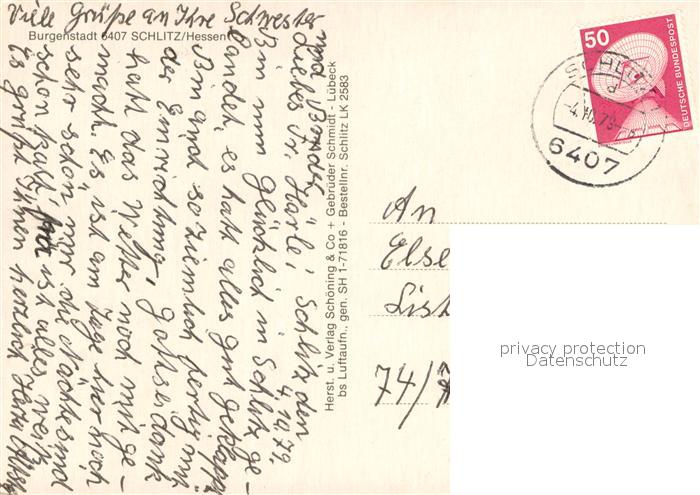 Viele Grüße an Ihre Schwester
und Bruder
Burgenstadt 6407 SCHLITZ/Hessen
Schlitz den
4.10.79.
Liebes Fr. Härle,
Bin nun glücklich in Schlitz ge-
landet, es hatt alles gut geklappt
Bin auch so ziemlich fertig mit
der Einrichtung, Gottseidank
hatt das Wetter noch mit ge-
macht. Es ist am Tage hier noch
sehr schön nur die Nächte sind
schon kalt, ist alles weiß
Es grüßt Ihnen herzlich
Herst. u. Verlag Schöning & Co + Gebrüder Schmidt - Lübeck
bs Luftaufn., gen. SH 1-71816 - Bestellnr. Schlitz LK 2583
50
DEUTSCHE BUNDESPOST
SCHLITZ
d
-4.10.79
6407
An
Else
List
74/7
privacy protection
Datenschutz